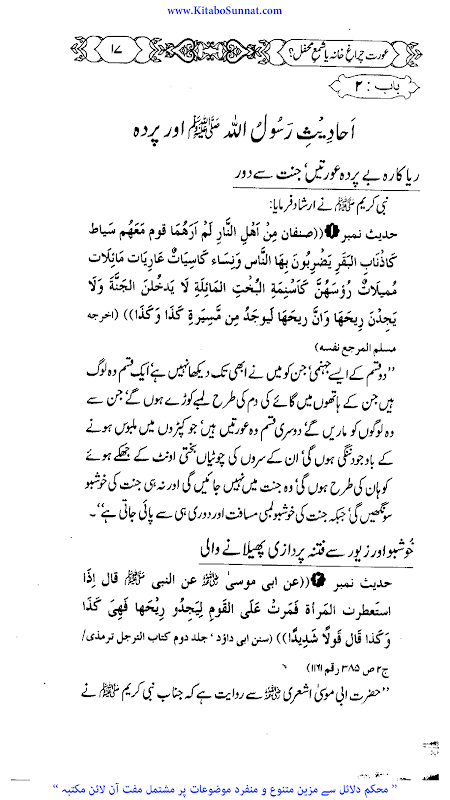 www.KitaboSunnat.com
عورت چراغ خانہ یا شمع محفل؟
۱۷
باب : ۲
اَحادیثِ رَسُولُ اللہ ﷺ اور پردہ
ریا کارہ بے پردہ عورتیں' جنت سے دور
نبی کریم ﷺ نے ارشاد فرمایا:
حدیث نمبر ۱ ((صنفان مِنْ اَهْلِ النَّارِ لَمْ اَرَهُمَا قوم مَعَهُم سَیاط
کَاَذْنَابِ البَقَرِ یَضْرِبُونَ بِهَا النَّاس وَنِساء کَاسِیَاتٌ عَارِیَات مَائِلَات
مُمیلَاتٌ رُؤسهُنَّ کَاَسْنِمَةِ البُخْتِ المَائِلَةِ لَا یَدخُلنَ الجَنَّةَ وَلَا
یَجِدْنَ رِیحَهَا وَاِنَّ ریحهَا لَیوجَدُ مِن مَّسِیرَةِ کَذَا وَکَذَا))) (اخرجه
مسلم المرجع نفسه)
''دو قسم کے ایسے جہنمی' جن کو میں نے ابھی تک دیکھا نہیں ہے' ایک قسم وہ لوگ
ہیں جن کے ہاتھوں میں گائے کی دم کی طرح لمبے کوڑے ہوں گے' جن سے
وہ لوگوں کو ماریں گے' دوسری قسم وہ عورتیں ہیں' جو کپڑوں میں ملبوس ہونے
کے باوجود ننگی ہوں گی' ان کے سروں کی چوٹیاں بختی اونٹ کے جھکے ہوئے
کوہان کی طرح ہوں گی' وہ جنت میں نہیں جائیں گی اور نہ ہی جنت کی خوشبو
سونگھیں گی' جبکہ جنت کی خوشبو لمبی مسافت اور دوری ہی سے پائی جاتی ہے''۔
خُوشبو اور زیور سے فتنہ پردازی پھیلانے والی
حدیث نمبر ۲ ((عن ابی موسیٰ ؓ عن النبی ﷺ قال اِذَا
استَعطرت المَرأة فَمَرتْ عَلَی القَومِ لِیَجِدُو رِیْحَهَا فَهِیَ کَذَا
وَکَذَا قَالَ قَولًا شَدِیدًا))) (سنن ابی داؤد ' جلد دوم کتاب الترجل ترمذی/
ج ۲ ص ۳۸۵ رقم ۱۱۶۱)
''حضرت ابی موسیٰ اشعری ؓ سے روایت ہے کہ جناب نبی کریم ﷺ نے
" محکم دلائل سے مزین متنوع و منفرد موضوعات پر مشتمل مفت آن لائن مکتبہ "